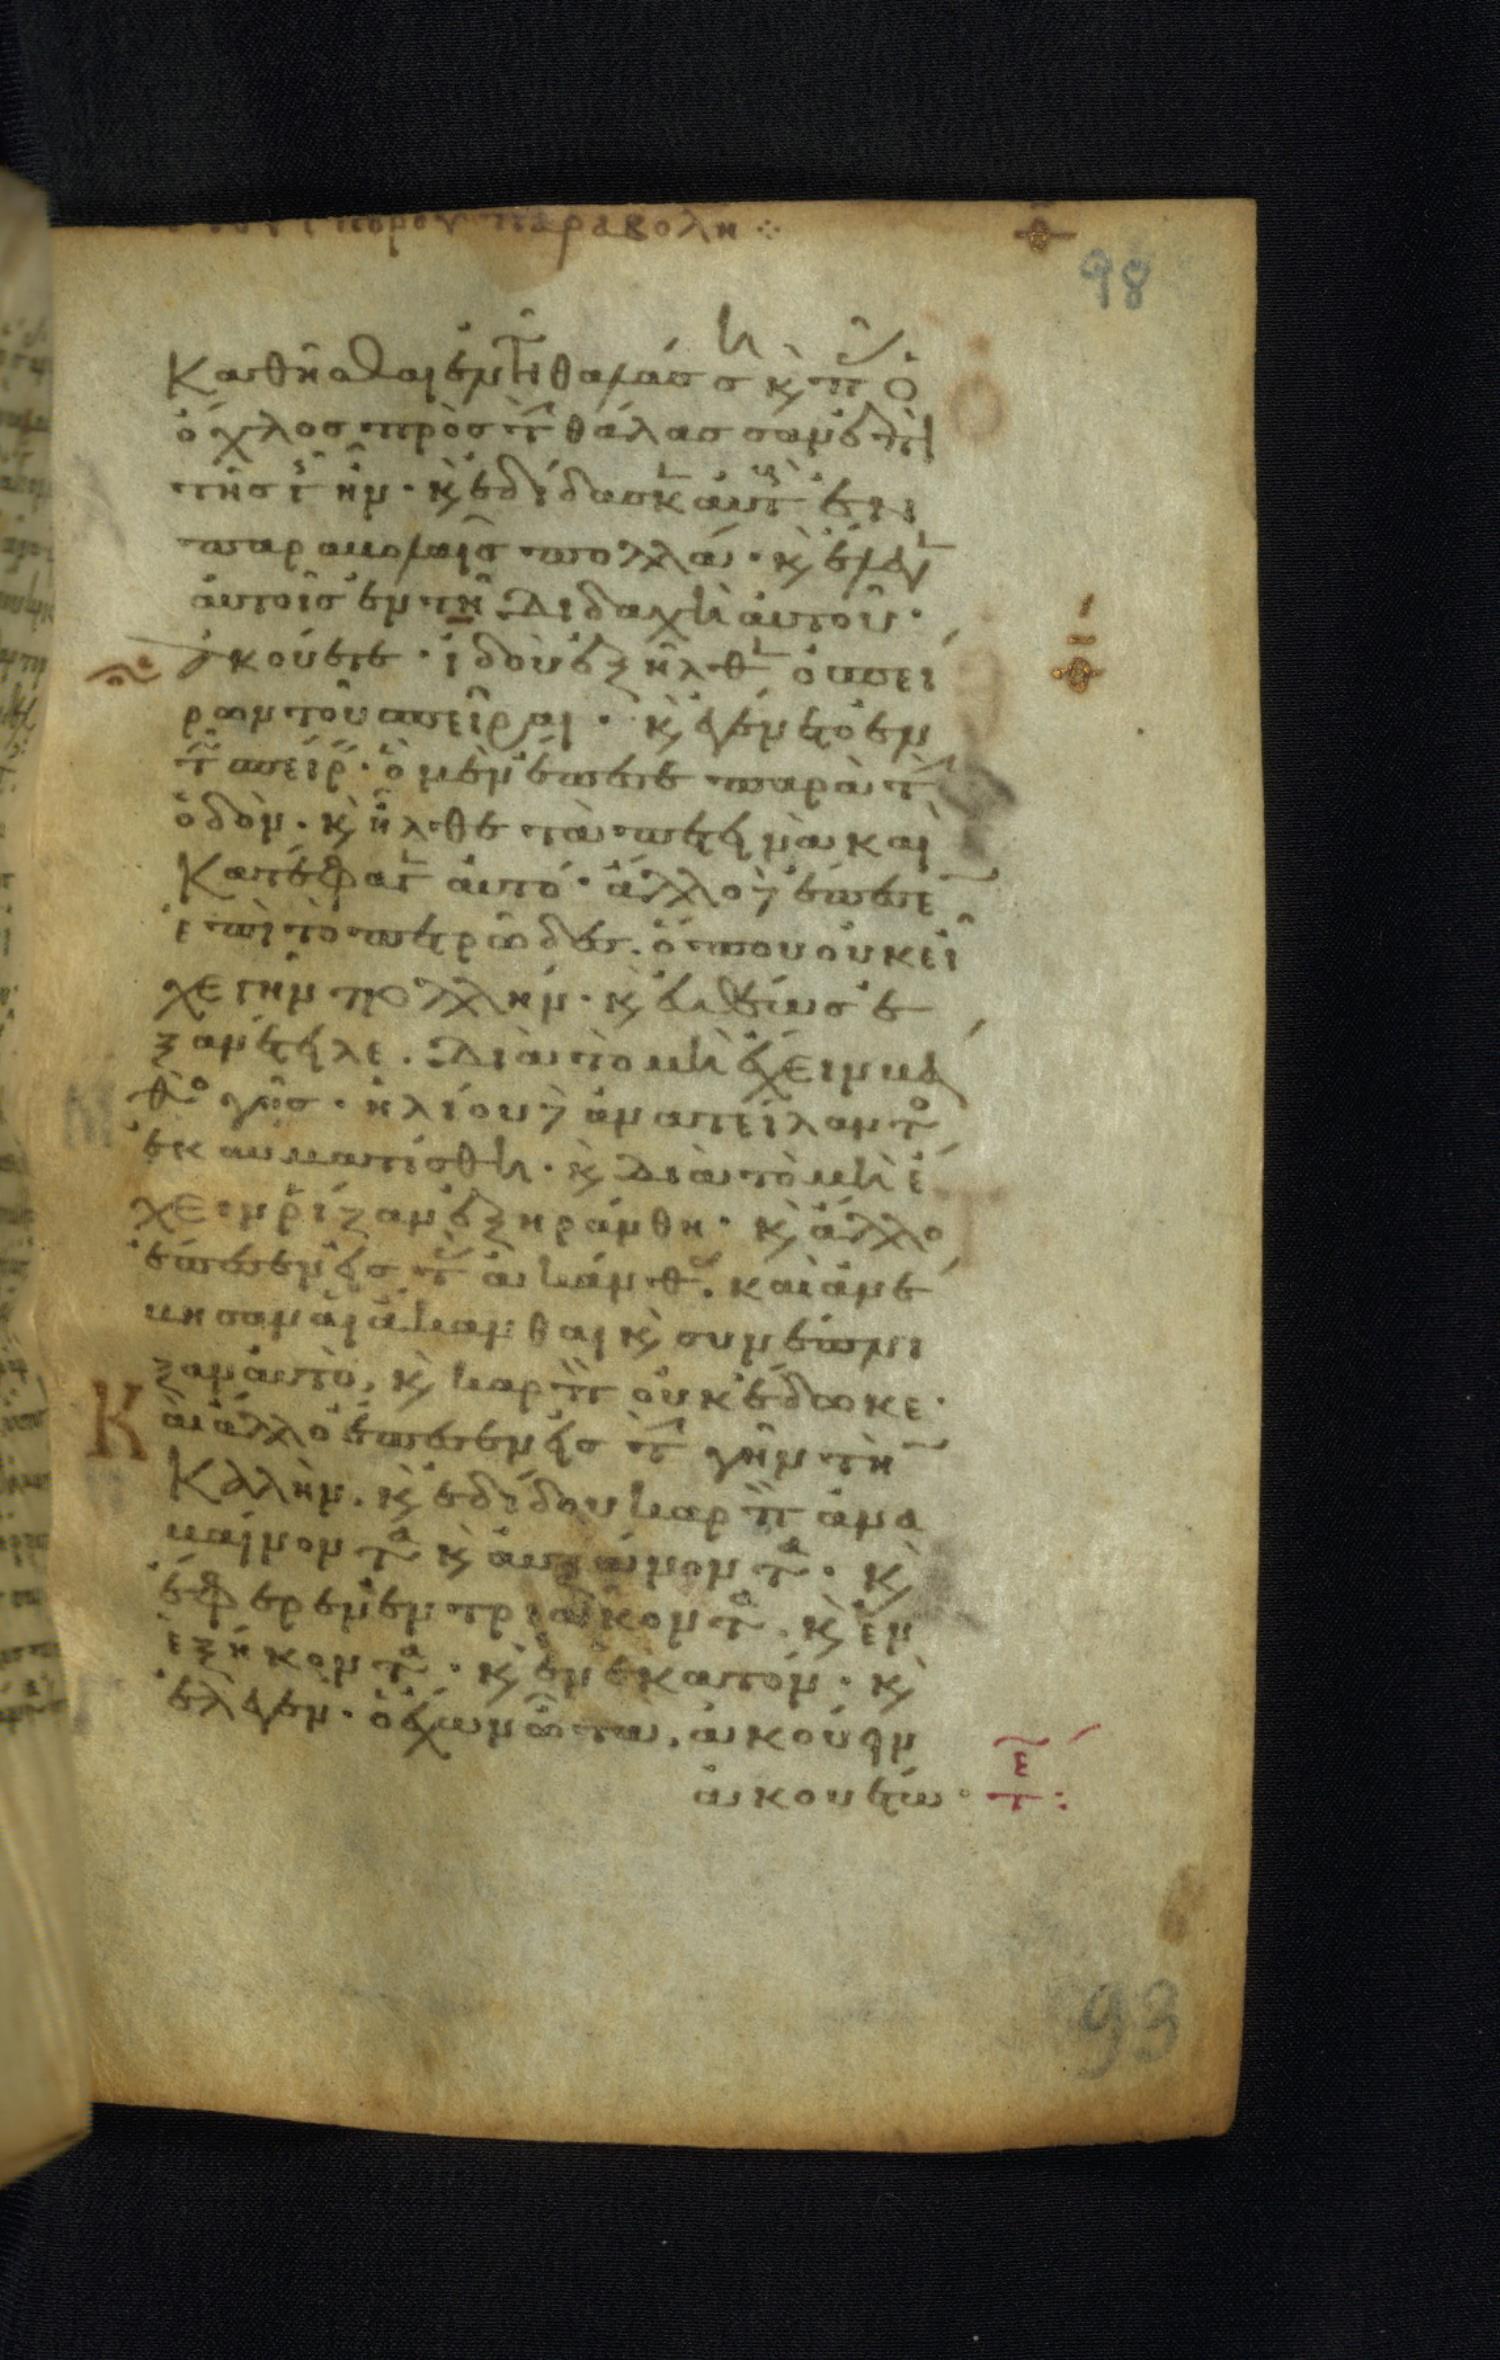 σπόρου παραβολή
98
καθῆσθαι ἐν τῇ θαλάσσῃ κ(αὶ) πᾶς ὁ
ὄχλος πρὸς τ(ὴν) θάλασσαν ἐπὶ
τῆς γῆς ἦν· κ(αὶ) ἐδίδασκεν αὐτοὺς ἐν
παραβολαῖς πολλά· κ(αὶ) ἔλεγεν
αὐτοῖς ἐν τῇ διδαχῇ αὐτοῦ·
ἀκούετε· ἰδοὺ ἐξῆλθεν ὁ σπεί
ρων τοῦ σπεῖραι· κ(αὶ) ἐγένετο ἐν
τῷ σπείρειν· ὃ μὲν ἔπεσε παρὰ τὴν
ὁδόν· κ(αὶ) ἦλθε τὰ πετεινὰ καὶ
κατέφαγεν αὐτό· ἄλλο δὲ ἔπεσεν
ἐπὶ τὸ πετρῶδες· ὅπου οὐκ εἶ
χε γῆν πολλήν· κ(αὶ) εὐθέως ἐ
ξανέτειλε· διὰ τὸ μὴ ἔχειν βά
θος γῆς· ἡλίου δὲ ἀνατείλαντος
ἐκαυματίσθη· κ(αὶ) διὰ τὸ μὴ ἔ
χειν ῥίζαν ἐξηράνθη· κ(αὶ) ἄλλο
ἔπεσεν εἰς τὰς ἀκάνθας· καὶ ἀνέ
βησαν αἱ ἄκανθαι κ(αὶ) συνέπνι
ξαν αὐτό, κ(αὶ) καρπὸν οὐκ ἔδωκε·
Καὶ ἄλλο ἔπεσεν εἰς τὴν γῆν τὴν
καλήν· κ(αὶ) ἐδίδου καρπὸν ἀνα
βαίνοντα κ(αὶ) αὐξάνοντα· κ(αὶ)
ἔφερεν ἐν τριάκοντα· κ(αὶ) ἐν
ἑξήκοντα· κ(αὶ) ἐν ἑκατόν· κ(αὶ)
ἔλεγεν· ὁ ἔχων ὦτα, ἀκούειν
ἀκουέτω·
93